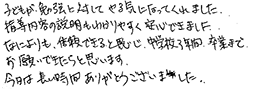 子どもが勉強に対してやる気になってくれました。
指導内容の説明もわかりやすく安心できました。
なによりも、信頼できると感じ、中学校3年間、卒業まで
お願いできたらと思います。
今日は長い時間ありがとうございました。